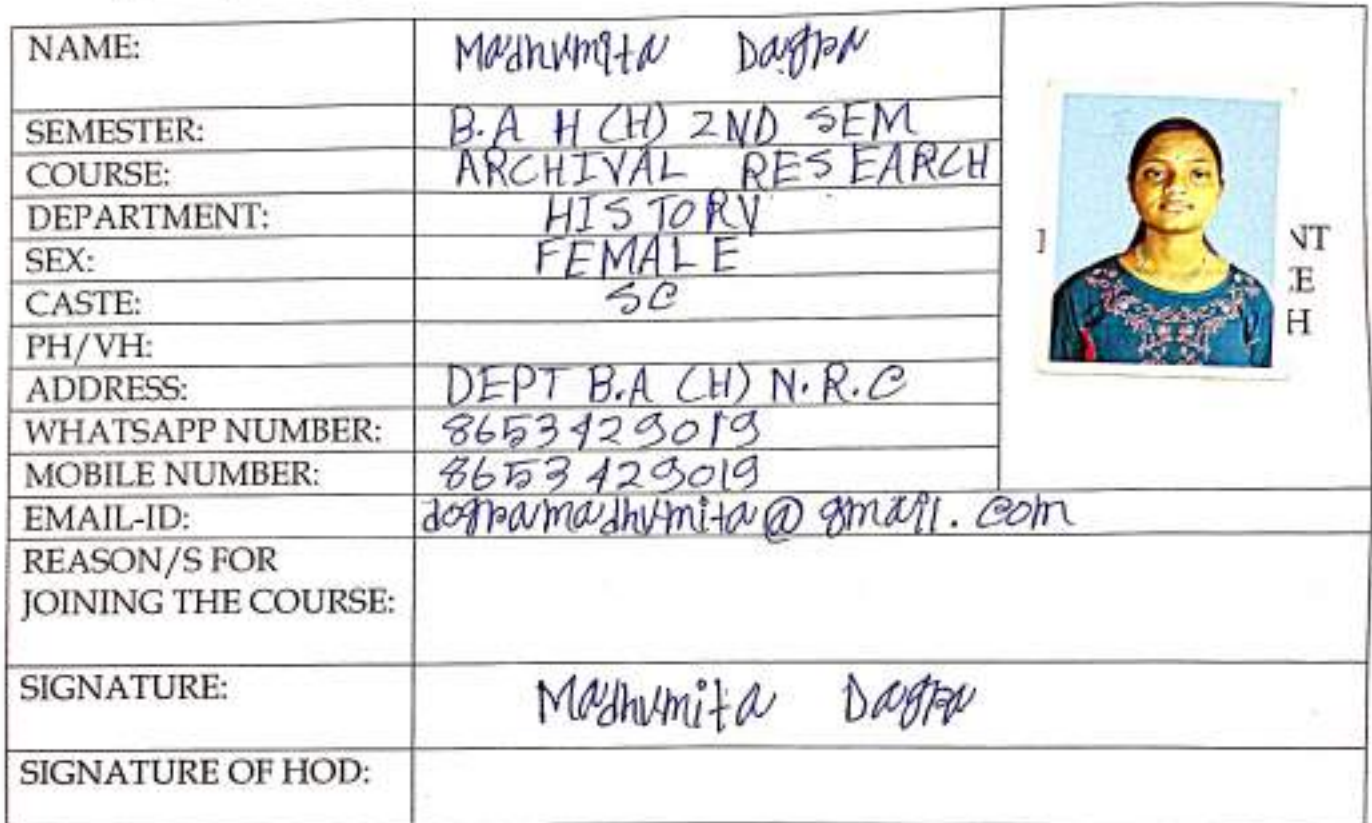 NAME: Madhumita Dagra
SEMESTER: B.A H (H) 2ND SEM
COURSE: ARCHIVAL RESEARCH
DEPARTMENT: HISTORY
SEX: FEMALE
CASTE: SC
PH/VH:
ADDRESS: DEPT B.A (H) N.R.C
WHATSAPP NUMBER: 8653429019
MOBILE NUMBER: 8653429019
EMAIL-ID: dogramadhumita@gmail.com
REASON/S FOR
JOINING THE COURSE:
SIGNATURE: Madhumita Dagra
SIGNATURE OF HOD: